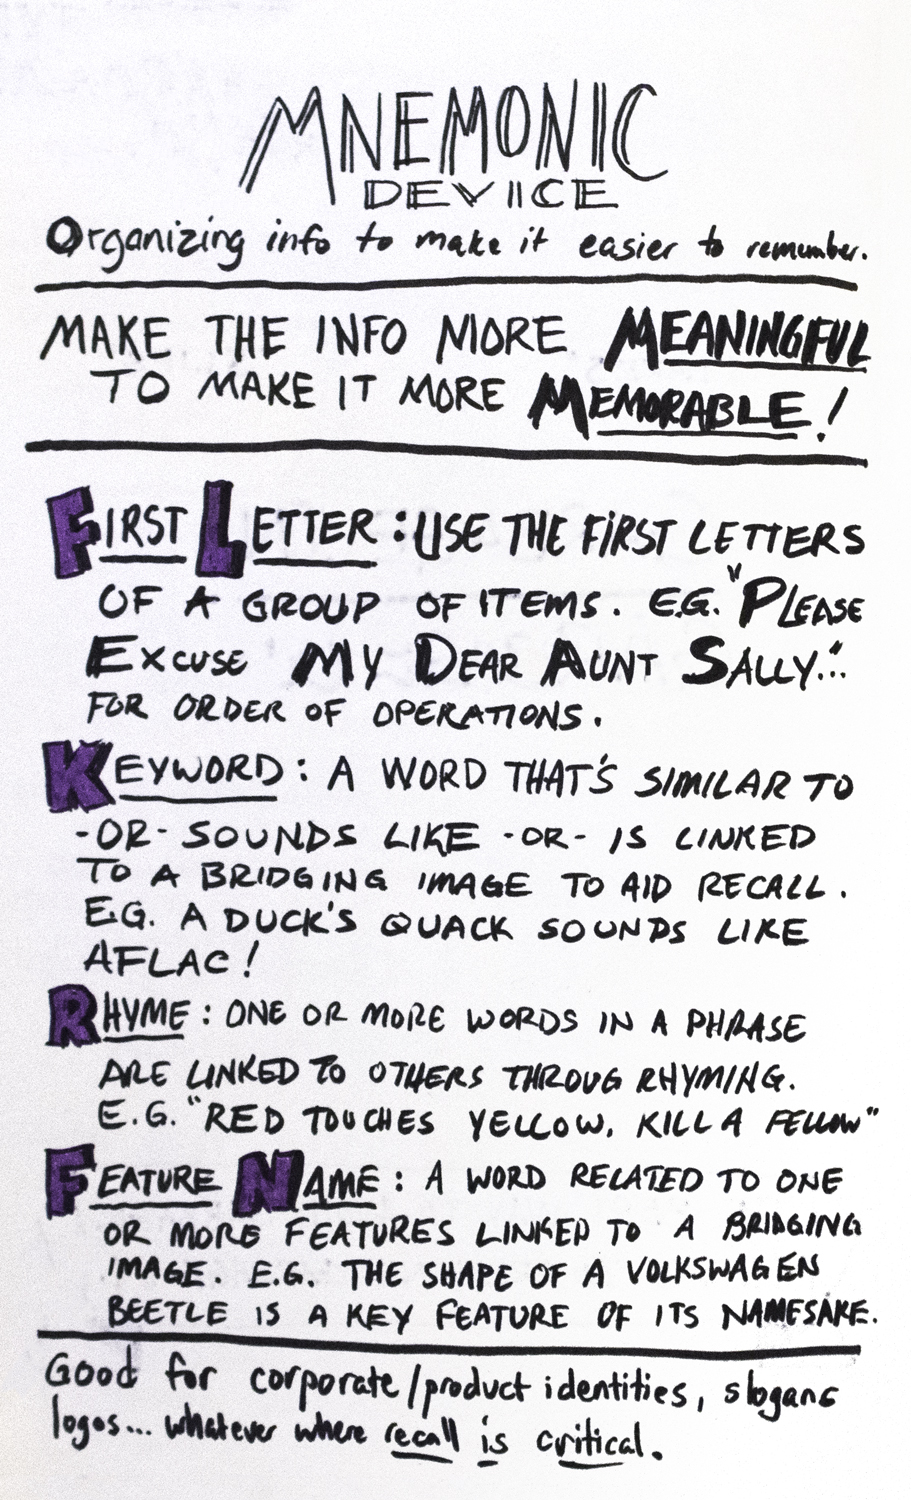 MNEMONIC
DEVICE
Organizing info to make it easier to remember.
MAKE THE INFO MORE MEANINGFUL
TO MAKE IT MORE MEMORABLE!
FIRST LETTER: USE THE FIRST LETTERS
OF A GROUP OF ITEMS. E.G. "PLEASE
EXCUSE MY DEAR AUNT SALLY."
FOR ORDER OF OPERATIONS.
KEYWORD: A WORD THAT'S SIMILAR TO
-OR- SOUNDS LIKE -OR- IS LINKED
TO A BRIDGING IMAGE TO AID RECALL.
E.G. A DUCK'S QUACK SOUNDS LIKE
AFLAC!
RHYME: ONE OR MORE WORDS IN A PHRASE
ARE LINKED TO OTHERS THROUG RHYMING.
E.G. "RED TOUCHES YELLOW, KILL A FELLOW"
FEATURE NAME: A WORD RELATED TO ONE
OR MORE FEATURES LINKED TO A BRIDGING
IMAGE. E.G. THE SHAPE OF A VOLKSWAGEN
BEETLE IS A KEY FEATURE OF ITS NAMESAKE.
Good for corporate/product identities, slogans
logos... whatever where recall is critical.